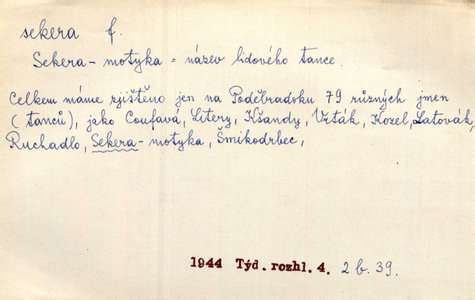 sekera f.
Sekera-motyka = název lidového tance.
Celkem máme zjištěno jen na Poděbradsku 79 různých jmen
(tanců), jako Coufavá, Litery, Kšandy, Vrták, Kozel, Latovák,
Ruchadlo, Sekera-motyka, Šmikodrbec,
1944 Týd. rozhl. 4. 2 b. 39.